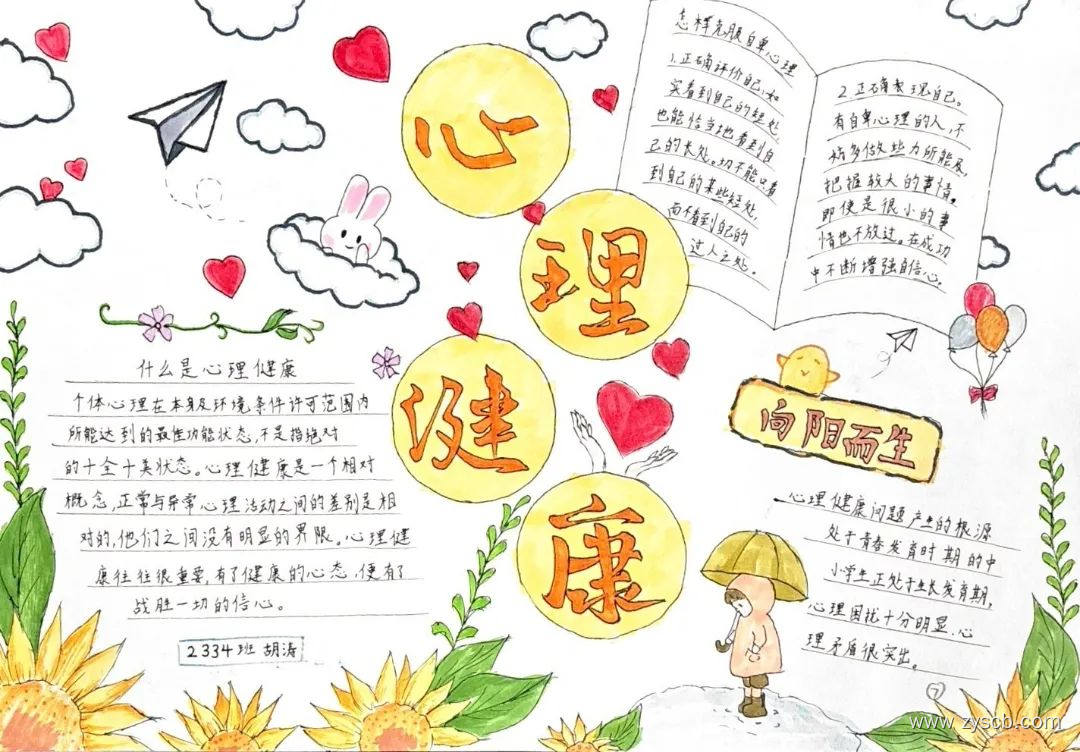 心
理
健
康
怎样克服自卑心理
1.正确评价自己,如
实看到自己的短处,
也能恰当地看到自
己的长处。切不能只看
到自己的某些短处,
而不看到自己的
过人之处。
2.正确表现自己。
有自卑心理的人,不
妨多做些力所能及,
把握放大的事情。
即使是很小的事
情也不放过。在成功
中不断增强自信心。
什么是心理健康
个体心理在本身及环境条件许可范围内
所能达到的最佳功能状态,不是指绝对
的十全十美状态。心理健康是一个相对
概念,正常与异常心理活动之间的差别是相
对的,他们之间没有明显的界限。心理健
康往往很重要,有了健康的心态,便有了
战胜一切的信心。
2334班 胡涛
向阳而生
心理健康问题产生的根源
处于青春发育时期的中
小学生正处于生长发育期,
心理困扰十分明显,心
理矛盾很突出。
7
www.zyscb.com